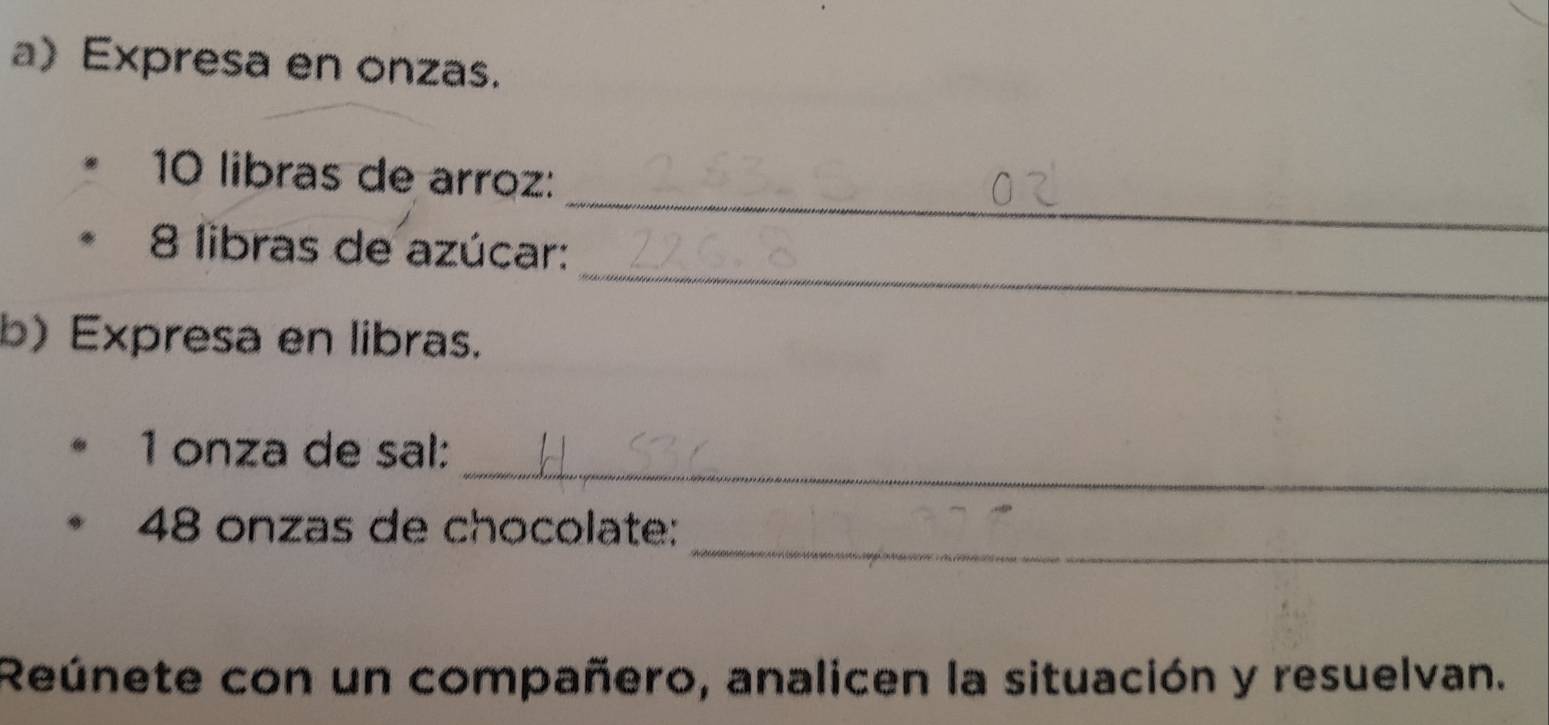 a) Expresa en onzas.
• 10 libras de arroz: oz
• 8 libras de azúcar: 226.8
b) Expresa en libras.
• 1 onza de sal:
• 48 onzas de chocolate:
Reúnete con un compañero, analicen la situación y resuelvan.